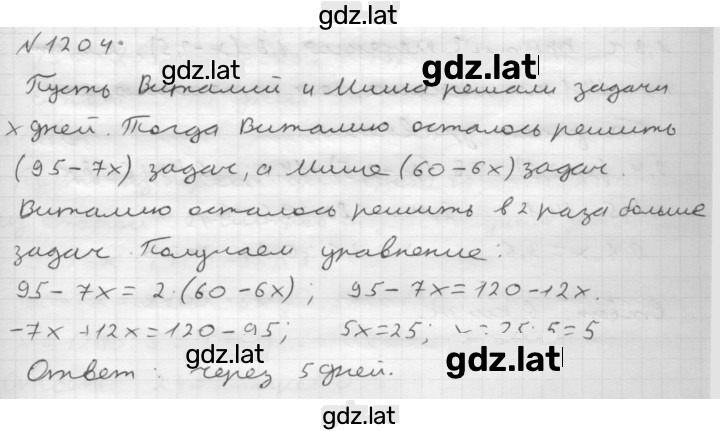 gdz.lat
N 1204.
gdz.lat gdz.lat
Пусть Виталий и Миша решали задачи
x дней. Тогда Виталию осталось решить
(95 - 7x) задач, а Мише (60 - 6x) задач.
Виталию осталось решить в 2 раза больше
задач. Получаем уравнение:
95 - 7x = 2·(60 - 6x); 95 - 7x = 120 - 12x.
-7x + 12x = 120 - 95; 5x = 25; x = 25 : 5 = 5
gdz.lat gdz.lat
Ответ: через 5 дней.
gdz.lat